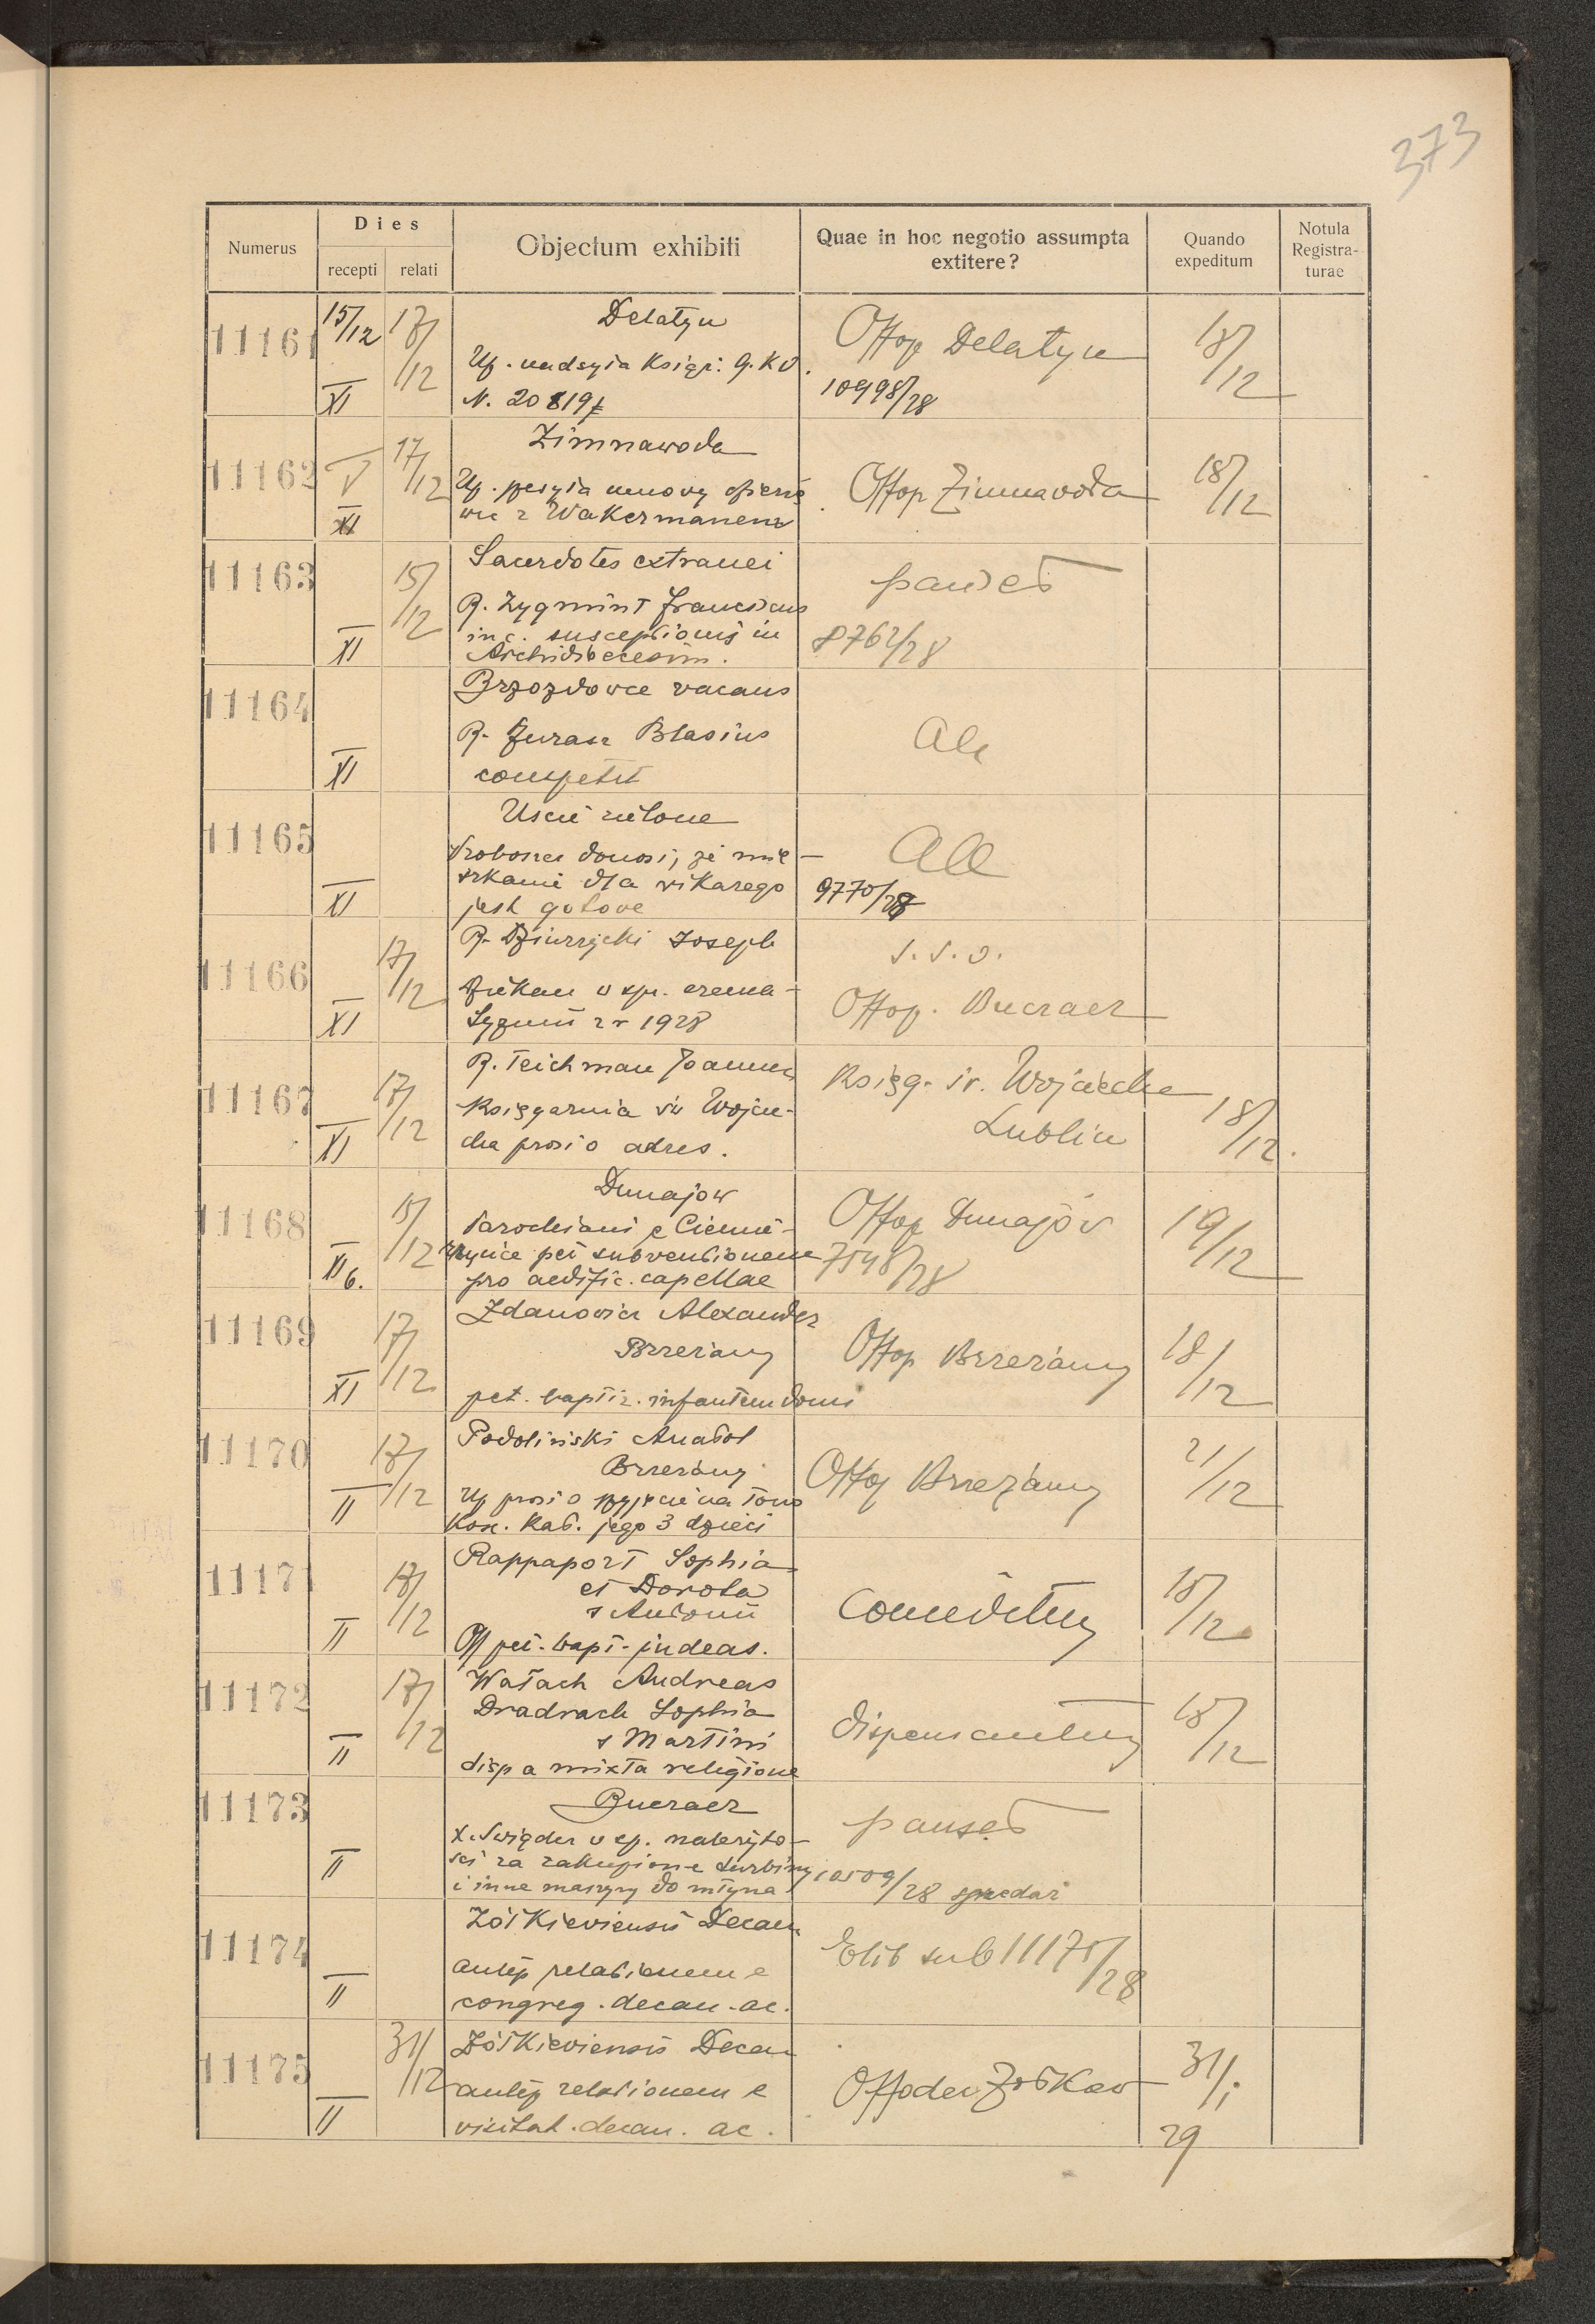 373
Numerus
Dies
recepti
relati
Objectum exhibiti
Quae in hoc negotio assumpta
extitere?
Quando
expeditum
Notula
Registra-
turae
11161
15/12
17/12
XI
Delatyn
Uf. nadsyła Książ. G.K.O.
N. 20819
Offop Delatyn
10998/28
18/12
11162
17/12
XI
Zimnawoda
Wakermanem
Offop Zimnawoda
18/12
11163
15/12
XI
Sacerdotes extranei
R. Zygmint Franciscus
in c. susceptionis in
Archidioecesim.
8762/28
11164
XI
Brzozdowce vacans
R. Juraz Blasius
competit
11165
XI
Uscie zielone
Proboszcz donosi, że mie-
szkanie dla wikarego
jest gotove
9770/28
11166
17/12
XI
R. Dziurzycki Joseph
Dziekan w spr.
1928
Offop. Buczacz
11167
17/12
XI
R. Teichman Joannes
Księgarnia św Wojcie-
cha prosi o adres.
Księg. św. Wojciecha
Lublin
18/12.
11168
15/12
XI 6.
Dunajow
Parochiani e Ciemie-
rzynce pet subventionem
pro aedific. capellae
Offop Dunajów
7548/28
19/12
11169
17/12
XI
Zdanowicz Alexander
Brzeżany
pet. baptiz. infantem domi
Offop Brzeżany
18/12
11170
17/12
II
Podoliński Anatol
Brzeżany
Uf prosi o przyjęcie na łono
Kosc. Kat. jego 3 dzieci
Offop Brzeżany
21/12
11171
17/12
II
Rappaport Sophia
et Dorota
s Antonii
Off pet. bapt. judeas.
Conceditur
18/12
11172
17/12
II
Wałach Andreas
Dradrach Sophia
s Martini
disp a mixta religione
dispensantur
18/12
11173
II
Buczacz
X. Swiąder v sp. należyto-
sci za zakupione turbiny
i inne maszyny do młyna
10509/28 sprzedaż
11174
II
Żółkieviensis Decan
relationem e
congreg. decan. ac.
Elib sub 11175/28
11175
31/12
II
Żółkieviensis Decan
relationem e
visitat. decan. ac.
Offodec Żółkiew
31/1
29